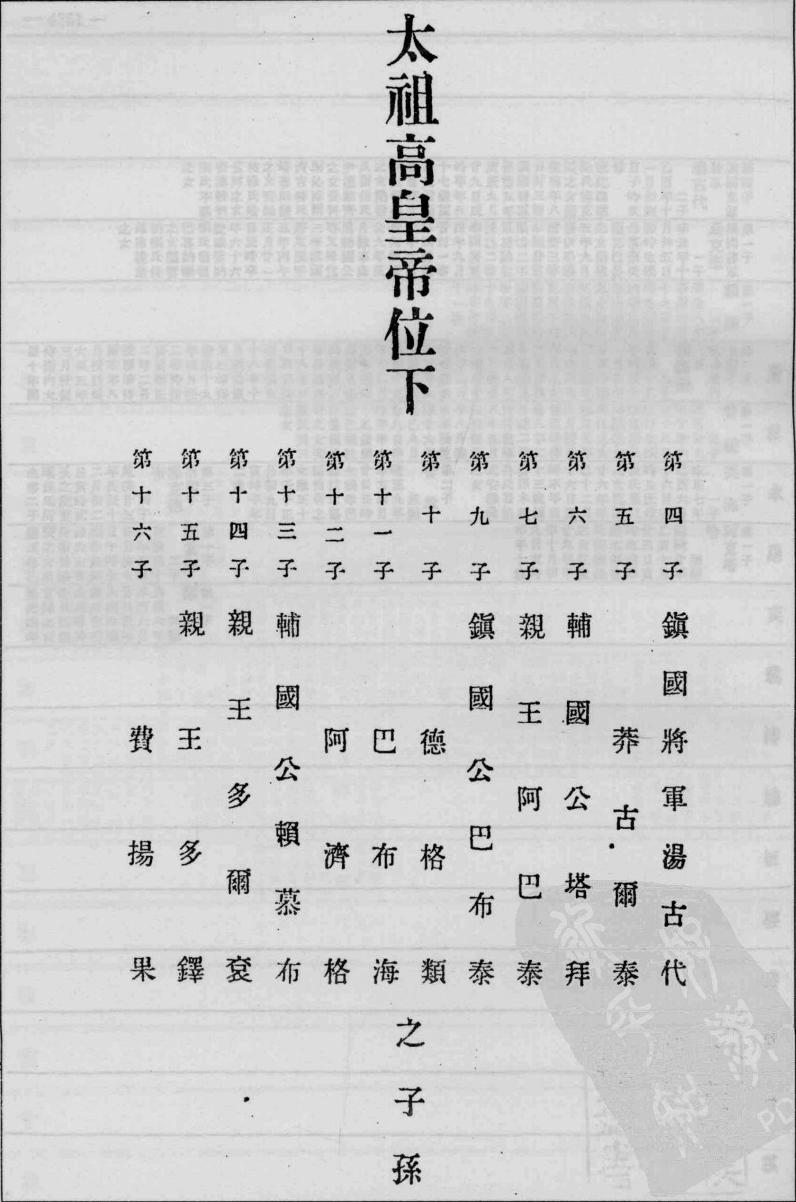 太祖高皇帝位下
第四子鎭國將軍湯古代
第五子莽古爾泰
第六子輔國公塔拜
第七子親王阿巴泰
第九子鎭國公巴布泰
第十子德格類
第十一子巴布海
第十二子阿濟格
第十三子輔國公賴慕布
第十四子親王多爾袞
第十五子親王多鐸
第十六子費揚果
之子孫